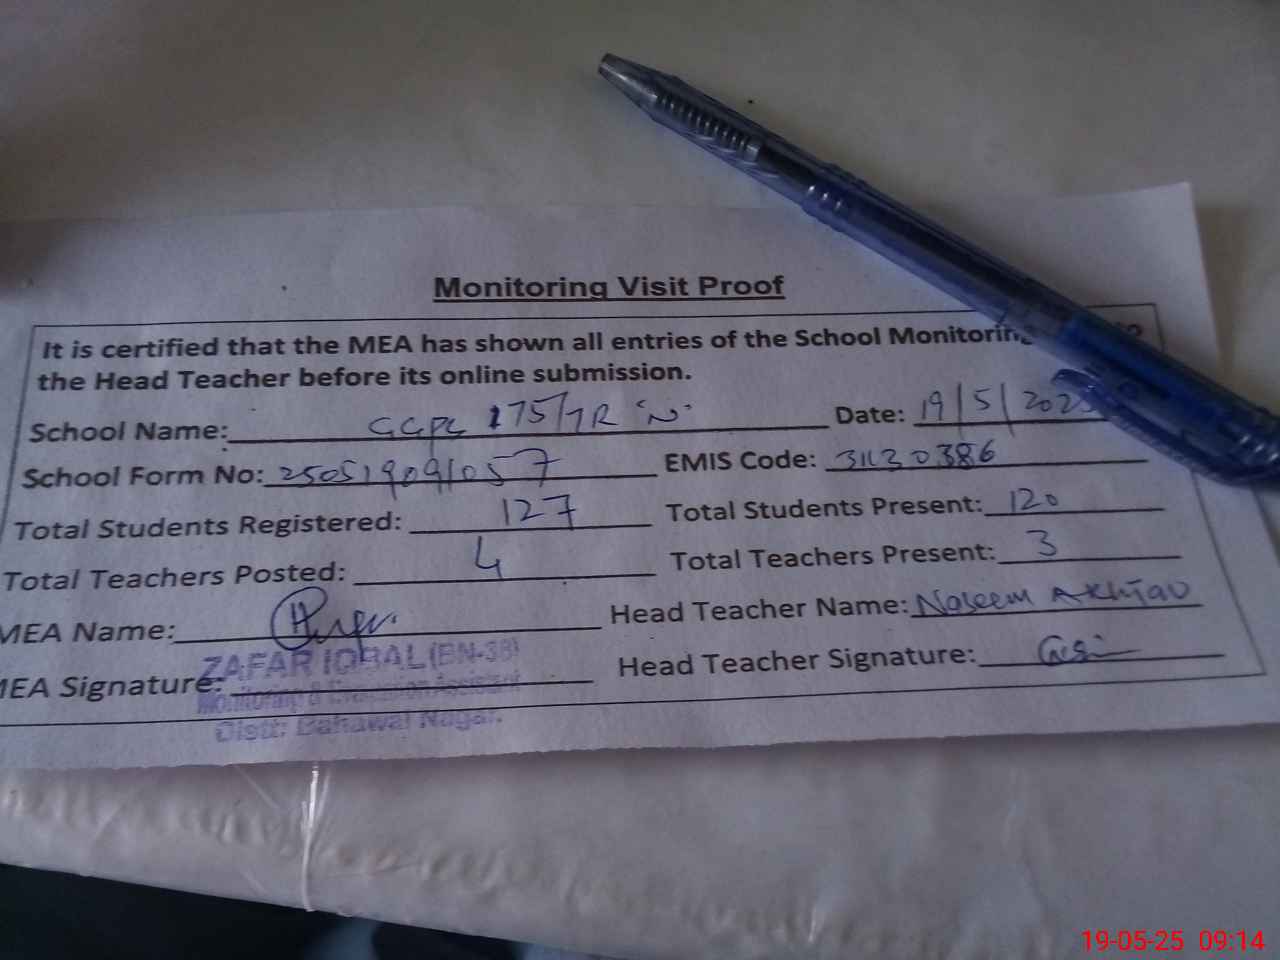 Monitoring Visit Proof
It is certified that the MEA has shown all entries of the School Monitoring
the Head Teacher before its online submission.
School Name: GGPS 175/7R 'N' Date: 19/5/2025
School Form No: 250519091057 EMIS Code: 31130386
Total Students Registered: 127 Total Students Present: 120
Total Teachers Posted: 4 Total Teachers Present: 3
MEA Name: Head Teacher Name: Naseem Akhtar
MEA Signature: Head Teacher Signature:
ZAFAR IQBAL
Monitoring & Evaluation Assistant
Distt: Bahawal Nagar.
19-05-25 09:14